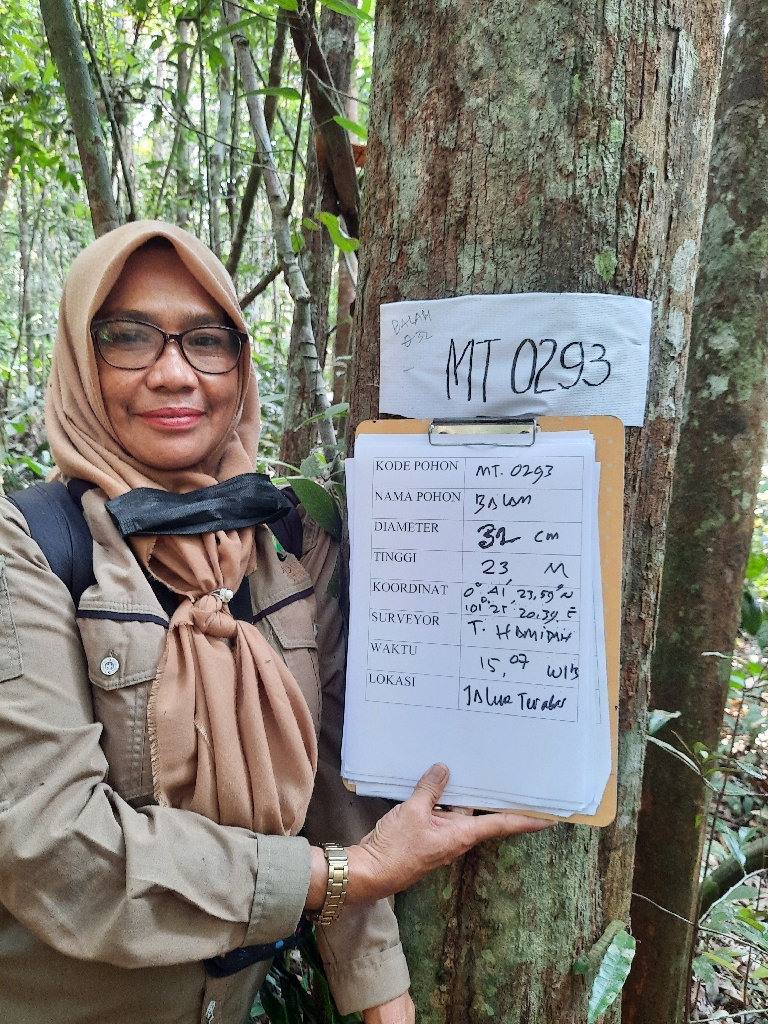 BALAM
#32
MT 0293
KODE POHON MT. 0293
NAMA POHON BALAM
DIAMETER 32 cm
TINGGI 23 M
KOORDINAT 0° 41' 23,59" N
101° 25' 20.39 E
SURVEYOR T. HAMIDAH
WAKTU 15,07 WIB
LOKASI Jalur